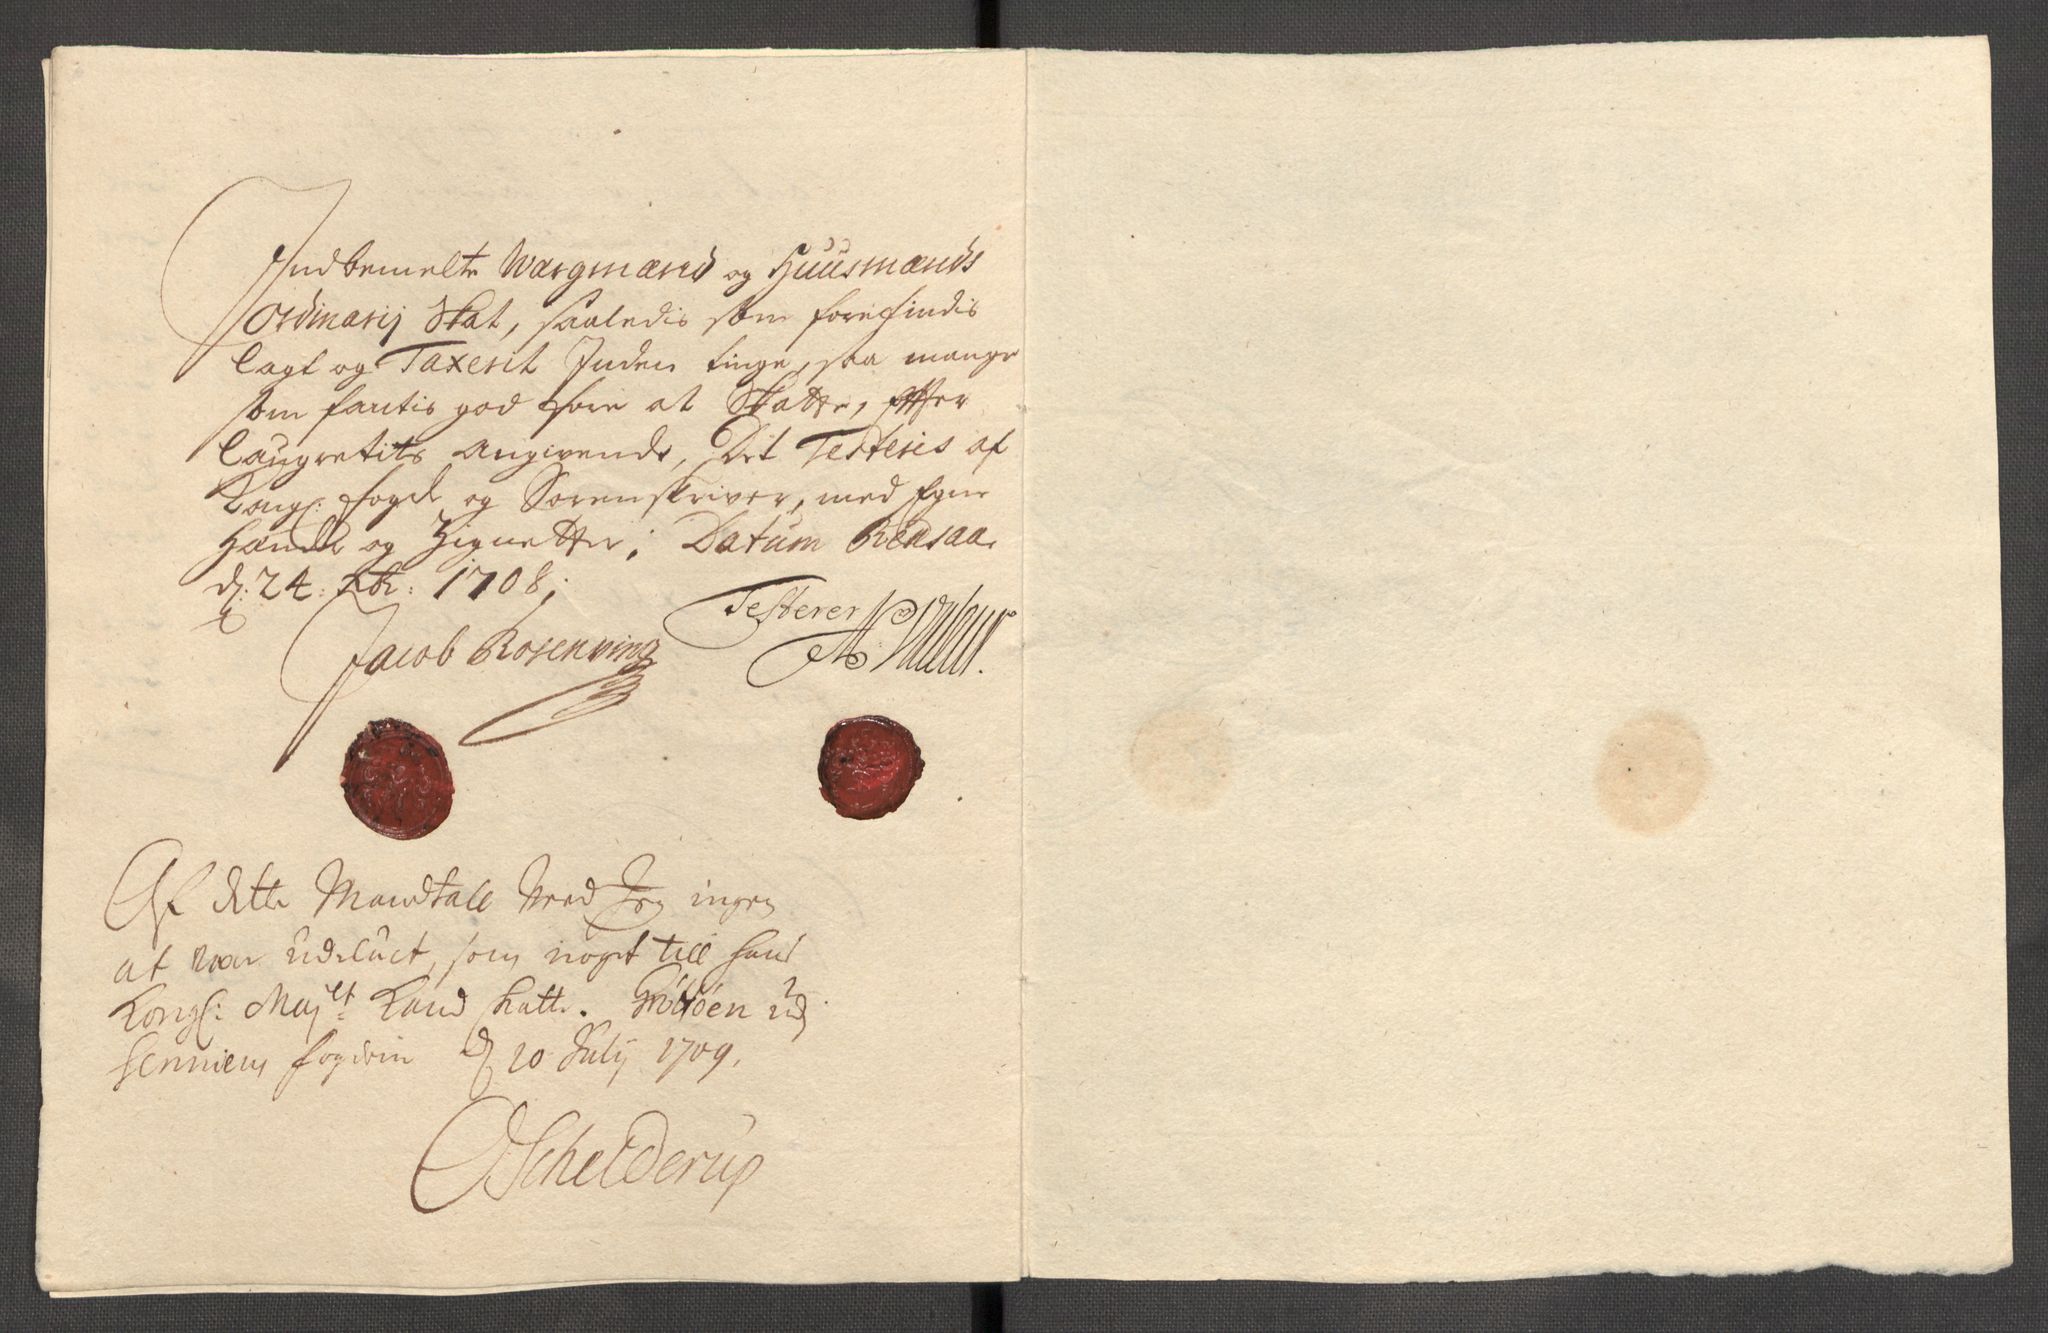 Indbemelte Wargmænd og Huusmænds
Ordinarij Skat, saaledis som forefindis
lagt og Taxerit Inden tinge, saa mange
som fantis god fore at Skatte, effter
laugretits angivende, Det Testeris af
Kongl: fogde og Sorenskriver, med Egne
Hænder og Zignetter; Datum
d: 24: 1708;
Testerer
Jacob Rosenving
Af dette Mandtall Veed Jeg ingen
at være udelůct, som noget till hans
Kongl: Maj:et kand skatte. i
Senniens fogderie d 20 Julij 1709.
OSchelderup